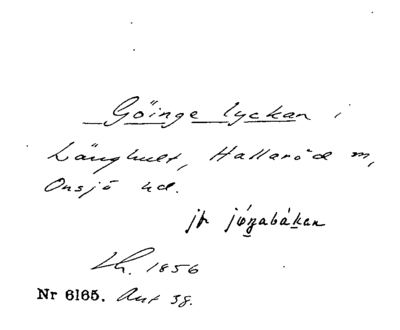 Göinge lyckan i
Långhult, Hallaröd m,
Onsjö hd.
jfr jö́ŋabákan
Lh. 1856
Nr 6165. Ant 38.